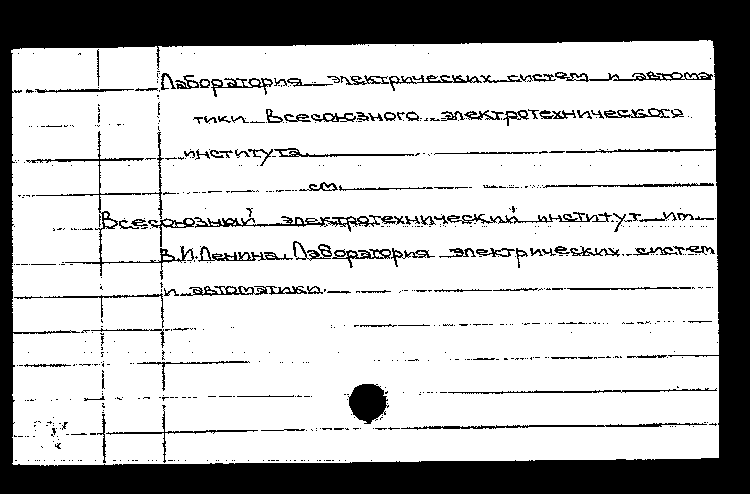 Лаборатория электрических систем и автома
тики Всесоюзного электротехнического
института.
см.
Всесоюзный электротехнический институт им.
В.И.Ленина. Лаборатория электрических систем
и автоматики.